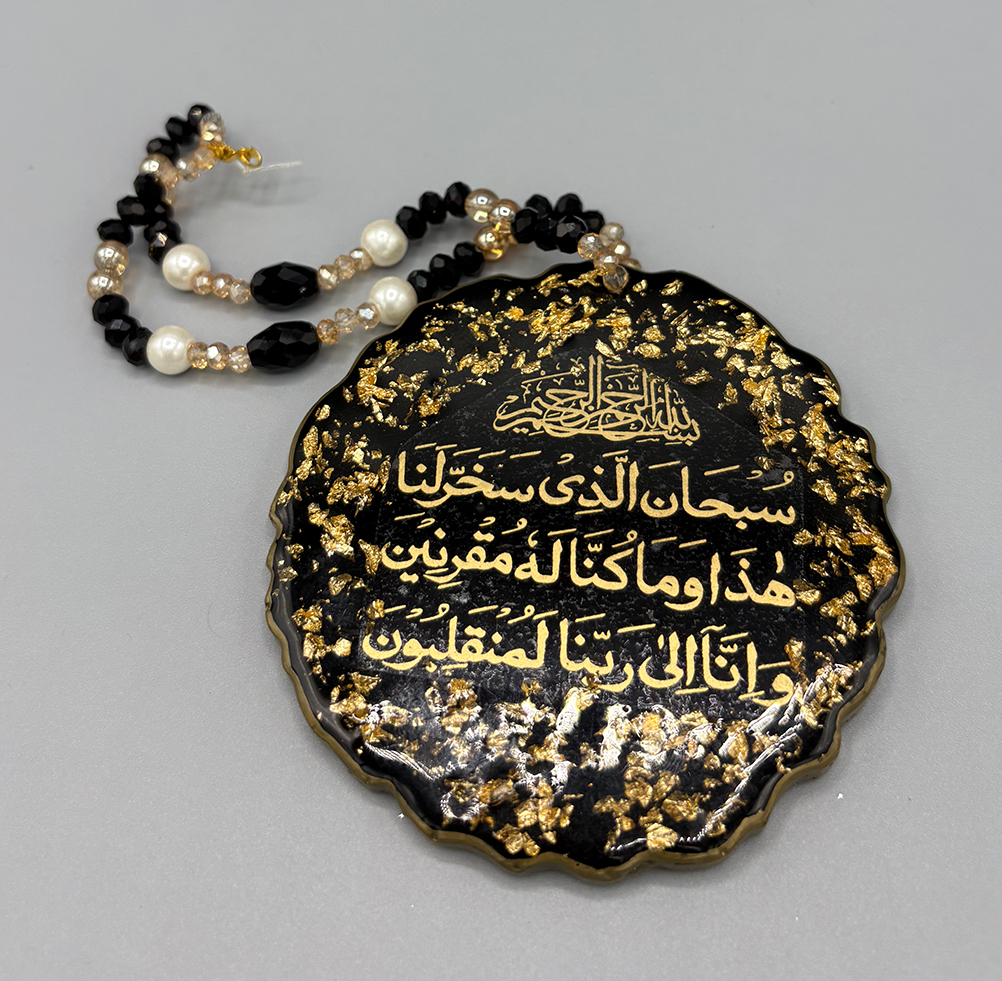 بسم الله الرحمن الرحيم
سُبْحَانَ الَّذِىْ سَخَّرَلَنَا
هٰذَا وَمَا كُنَّا لَهٗ مُقْرِنِيْنَ
وَاِنَّآ اِلٰى رَبِّنَا لَمُنْقَلِبُوْنَ